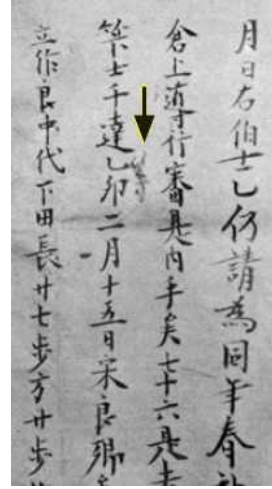 月日右伯士乙仍請為同年春
倉上道行審是內手矣七十六是
築士千達乙卯二月十五日宋良卿
立作良中代下田長廿七步方廿步